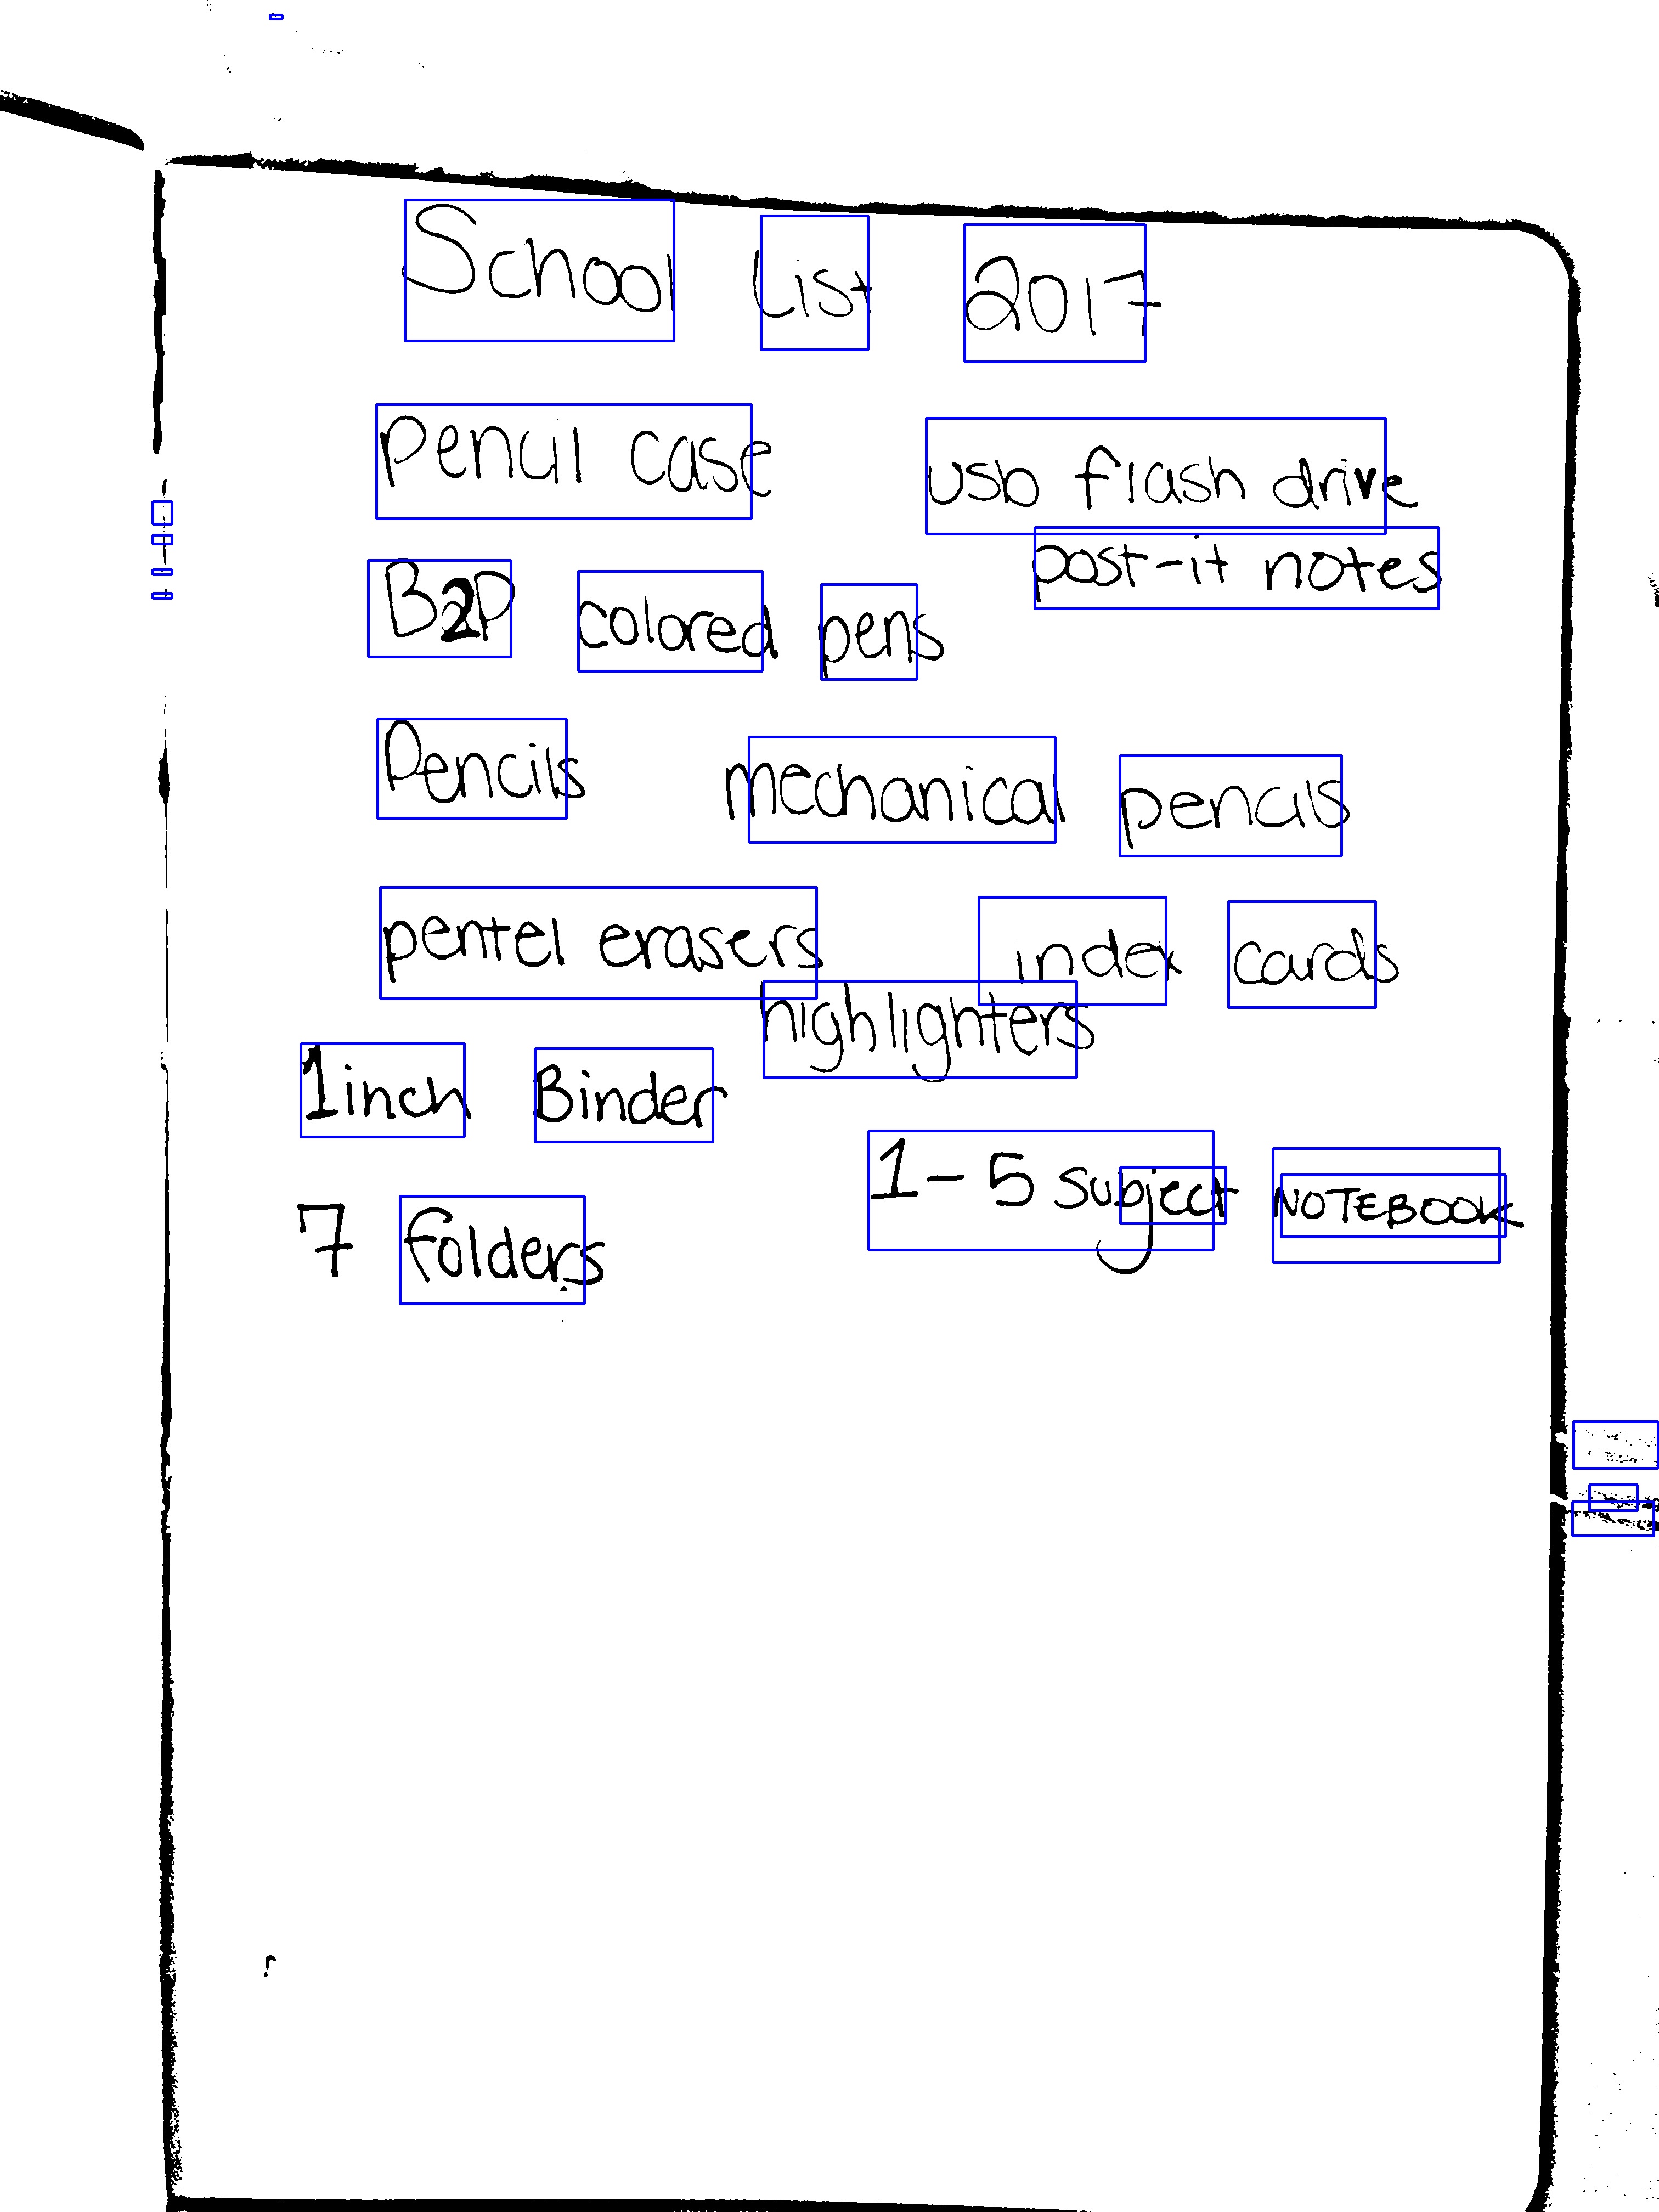 School List 2017
pencil case usb flash drive
post-it notes
B2P colored pens
Pencils mechanical pencils
pentel erasers index cards
highlighters
1inch Binder
1-5 subject NOTEBOOK
7 folders